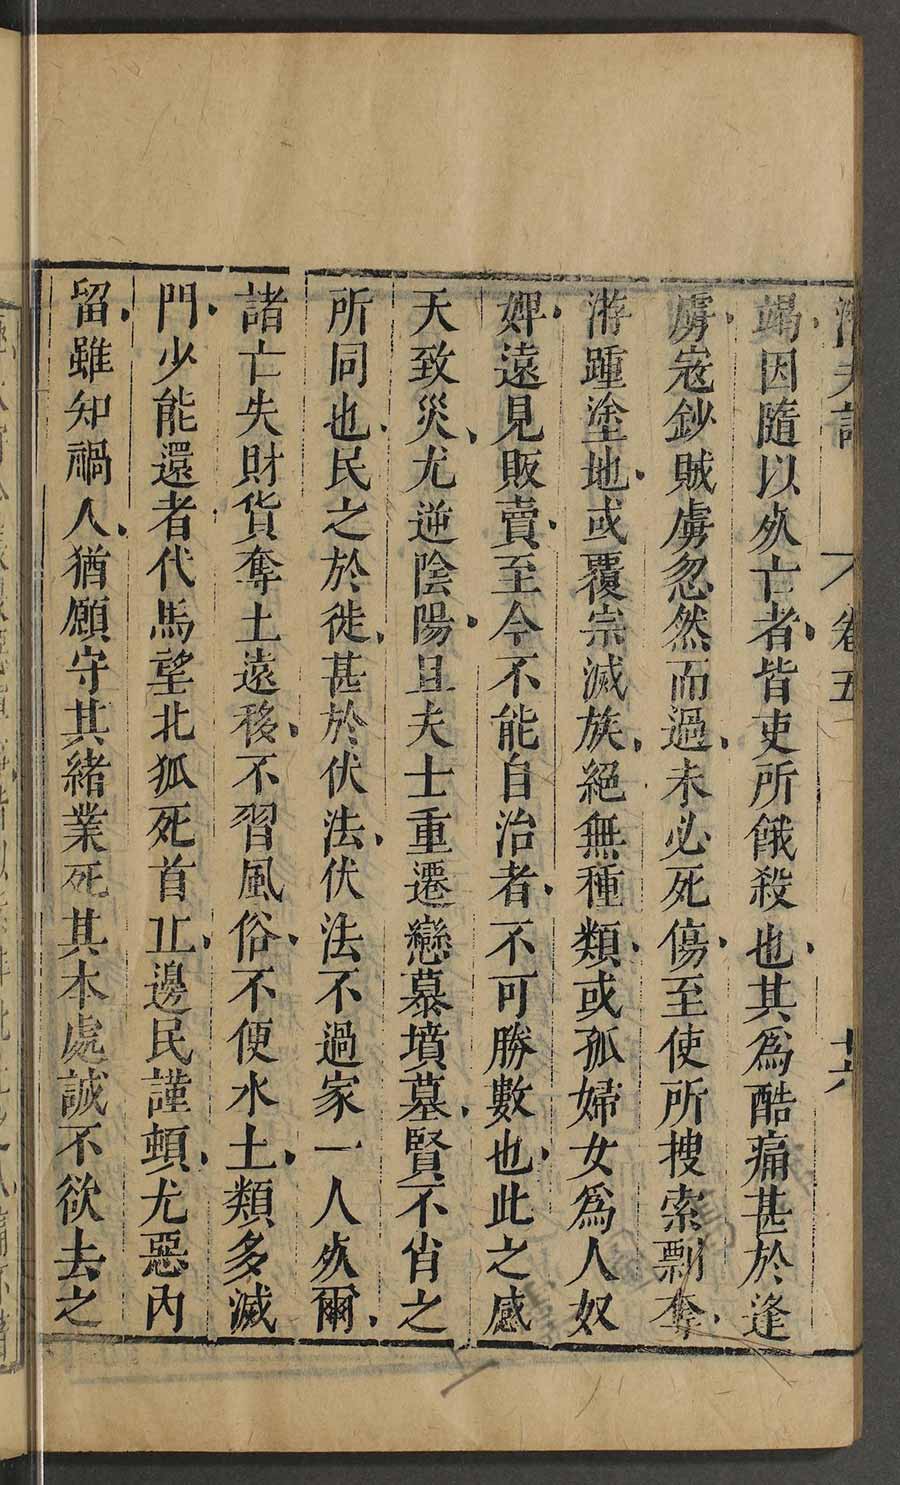 潛夫論 卷五 十六
竭因隨以死亡者皆吏所餓殺也其爲酷痛甚於逢
虜寇鈔賊虜忽然而過未必死傷至使所搜索剽奪
游踵塗地或覆宗滅族絕無種類或孤婦女爲人奴
婢遠見販賣至今不能自治者不可勝數也此之感
天致災尤逆陰陽且夫士重遷戀慕墳墓賢不肖之
所同也民之於徙甚於伏法伏法不過家一人死爾
諸亡失財貨奪土遠移不習風俗不便水土類多滅
門少能還者代馬望北狐死首丘邊民謹頓尤惡內
留雖知禍人猶願守其緒業死其本處誠不欲去之